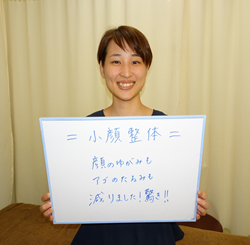 = 小顔整体 =
顔のゆがみも
アゴのたるみも
減りました!驚き!!